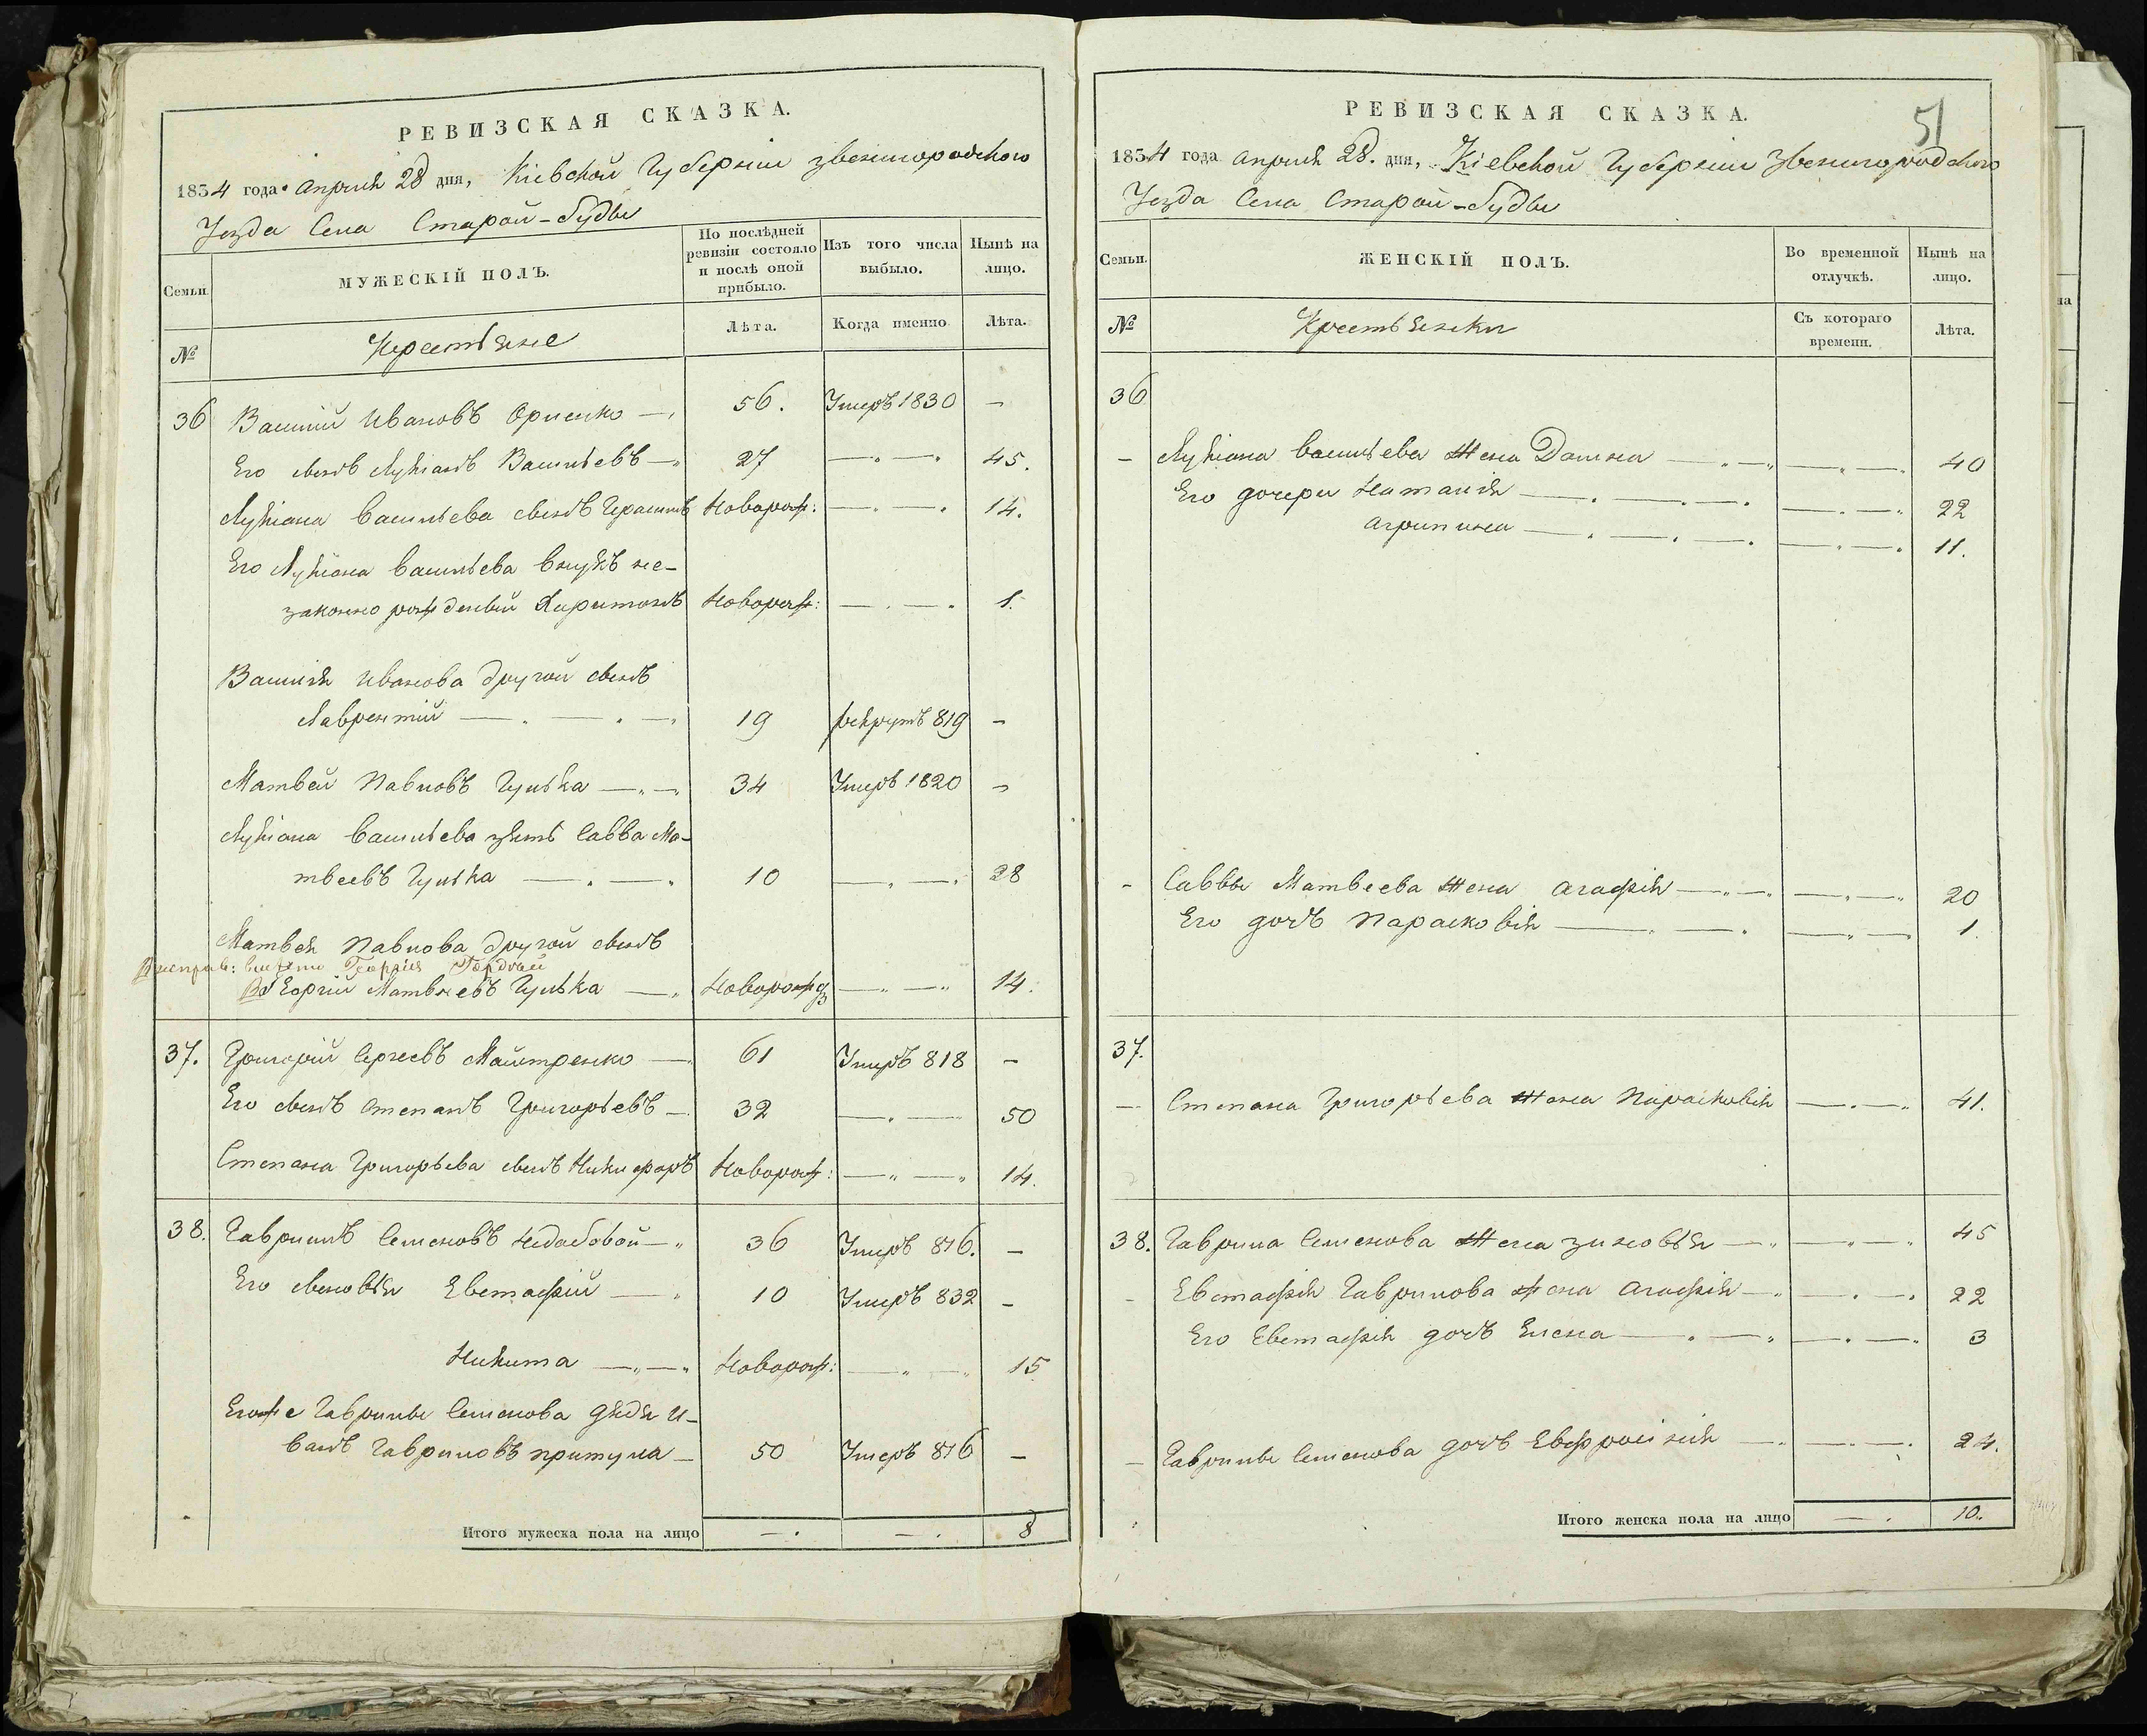 РЕВИЗСКАЯ СКАЗКА.
1834 года Апреля 28 дня, Кіевской Губерніи Звенигородского
Уезда Села Старой-Буды
Семьи.
МУЖЕСКІЙ ПОЛЪ.
По послѣдней ревизіи состояло и послѣ оной прибыло.
Изъ того числа выбыло.
Нынѣ на лицо.
№
Крестьяне
Лѣта.
Когда именно
Лѣта.
36 Василий Ивановъ 56. Умеръ 1830 —
Его сынъ Лукіанъ Васильевъ 27 — 45.
Лукіана Васильева сынъ Герасимъ Новорож: — 14.
Его Лукіана Васильева внукъ не-
законно рожденый Харитонъ Новорож: — 1.
Василія Иванова другой сынъ
Лаврентий 19 рекрутъ 819 —
Матвей Павловъ Гулька 34 Умеръ 1820 —
Лукіана Васильева зять Савва Ма-
твеевъ Гулька 10 — 28
Матвея Павлова другой сынъ
вместо Георгия Гордѣй
Георгий Матвеевъ Гулька Новорожд — 14.
37. Григорий Сергеевъ Майстренко 61 Умеръ 818 —
Его сынъ Степанъ Григорьевъ 32 — 50
Степана Григорьева сынъ Никифоръ Новорож: — 14.
38. Гаврилъ Семеновъ 36 Умеръ 816. —
Его сыновья Евстафий 10 Умеръ 832 —
Никита Новорож: — 15
Егоже Гаврилы Семенова дядя И-
ванъ Гавриловъ Притула 50 Умеръ 816 —
Итого мужеска пола на лицо — . — . 8
51
РЕВИЗСКАЯ СКАЗКА.
1834 года Апреля 28. дня, Кіевской Губерніи Звенигородского
Уезда Села Старой-Буды
Семьи.
ЖЕНСКІЙ ПОЛЪ.
Во временной отлучкѣ.
Нынѣ на лицо.
№
Крестьянки
Съ котораго времени.
Лѣта.
36
— Лукіана Васильева Жена Домна — 40
Его дочери Наталія — 22
Агрипина — 11.
— Саввы Матвеева Жена Агафія — 20
Его дочь Парасковія — 1.
37.
— Степана Григорьева Жена Парасковія — 41.
38. Гаврила Семенова Жена Зиновья — 45
— Евстафія Гаврилова Жена Агафія — 22
Его Евстафія дочь Елена — 3
— Гаврилы Семенова дочь Евфросинія — 24.
Итого женска пола на лицо — . 10.